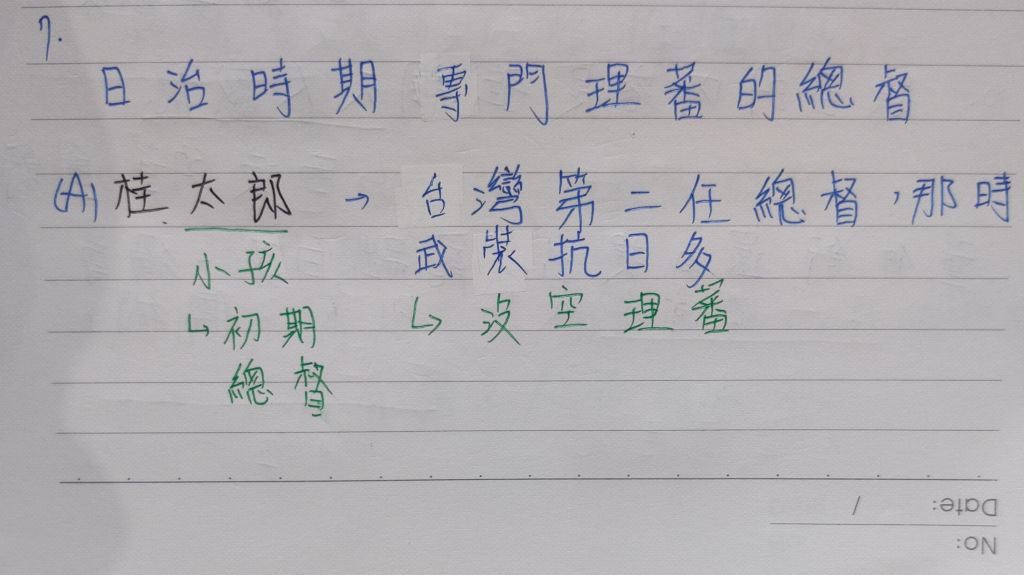 7.
日治時期專門理蕃的總督
(A)桂太郎 → 台灣第二任總督,那時
武裝抗日多
小孩
↳ 沒空理蕃
↳ 初期
總督
Date: /
No: